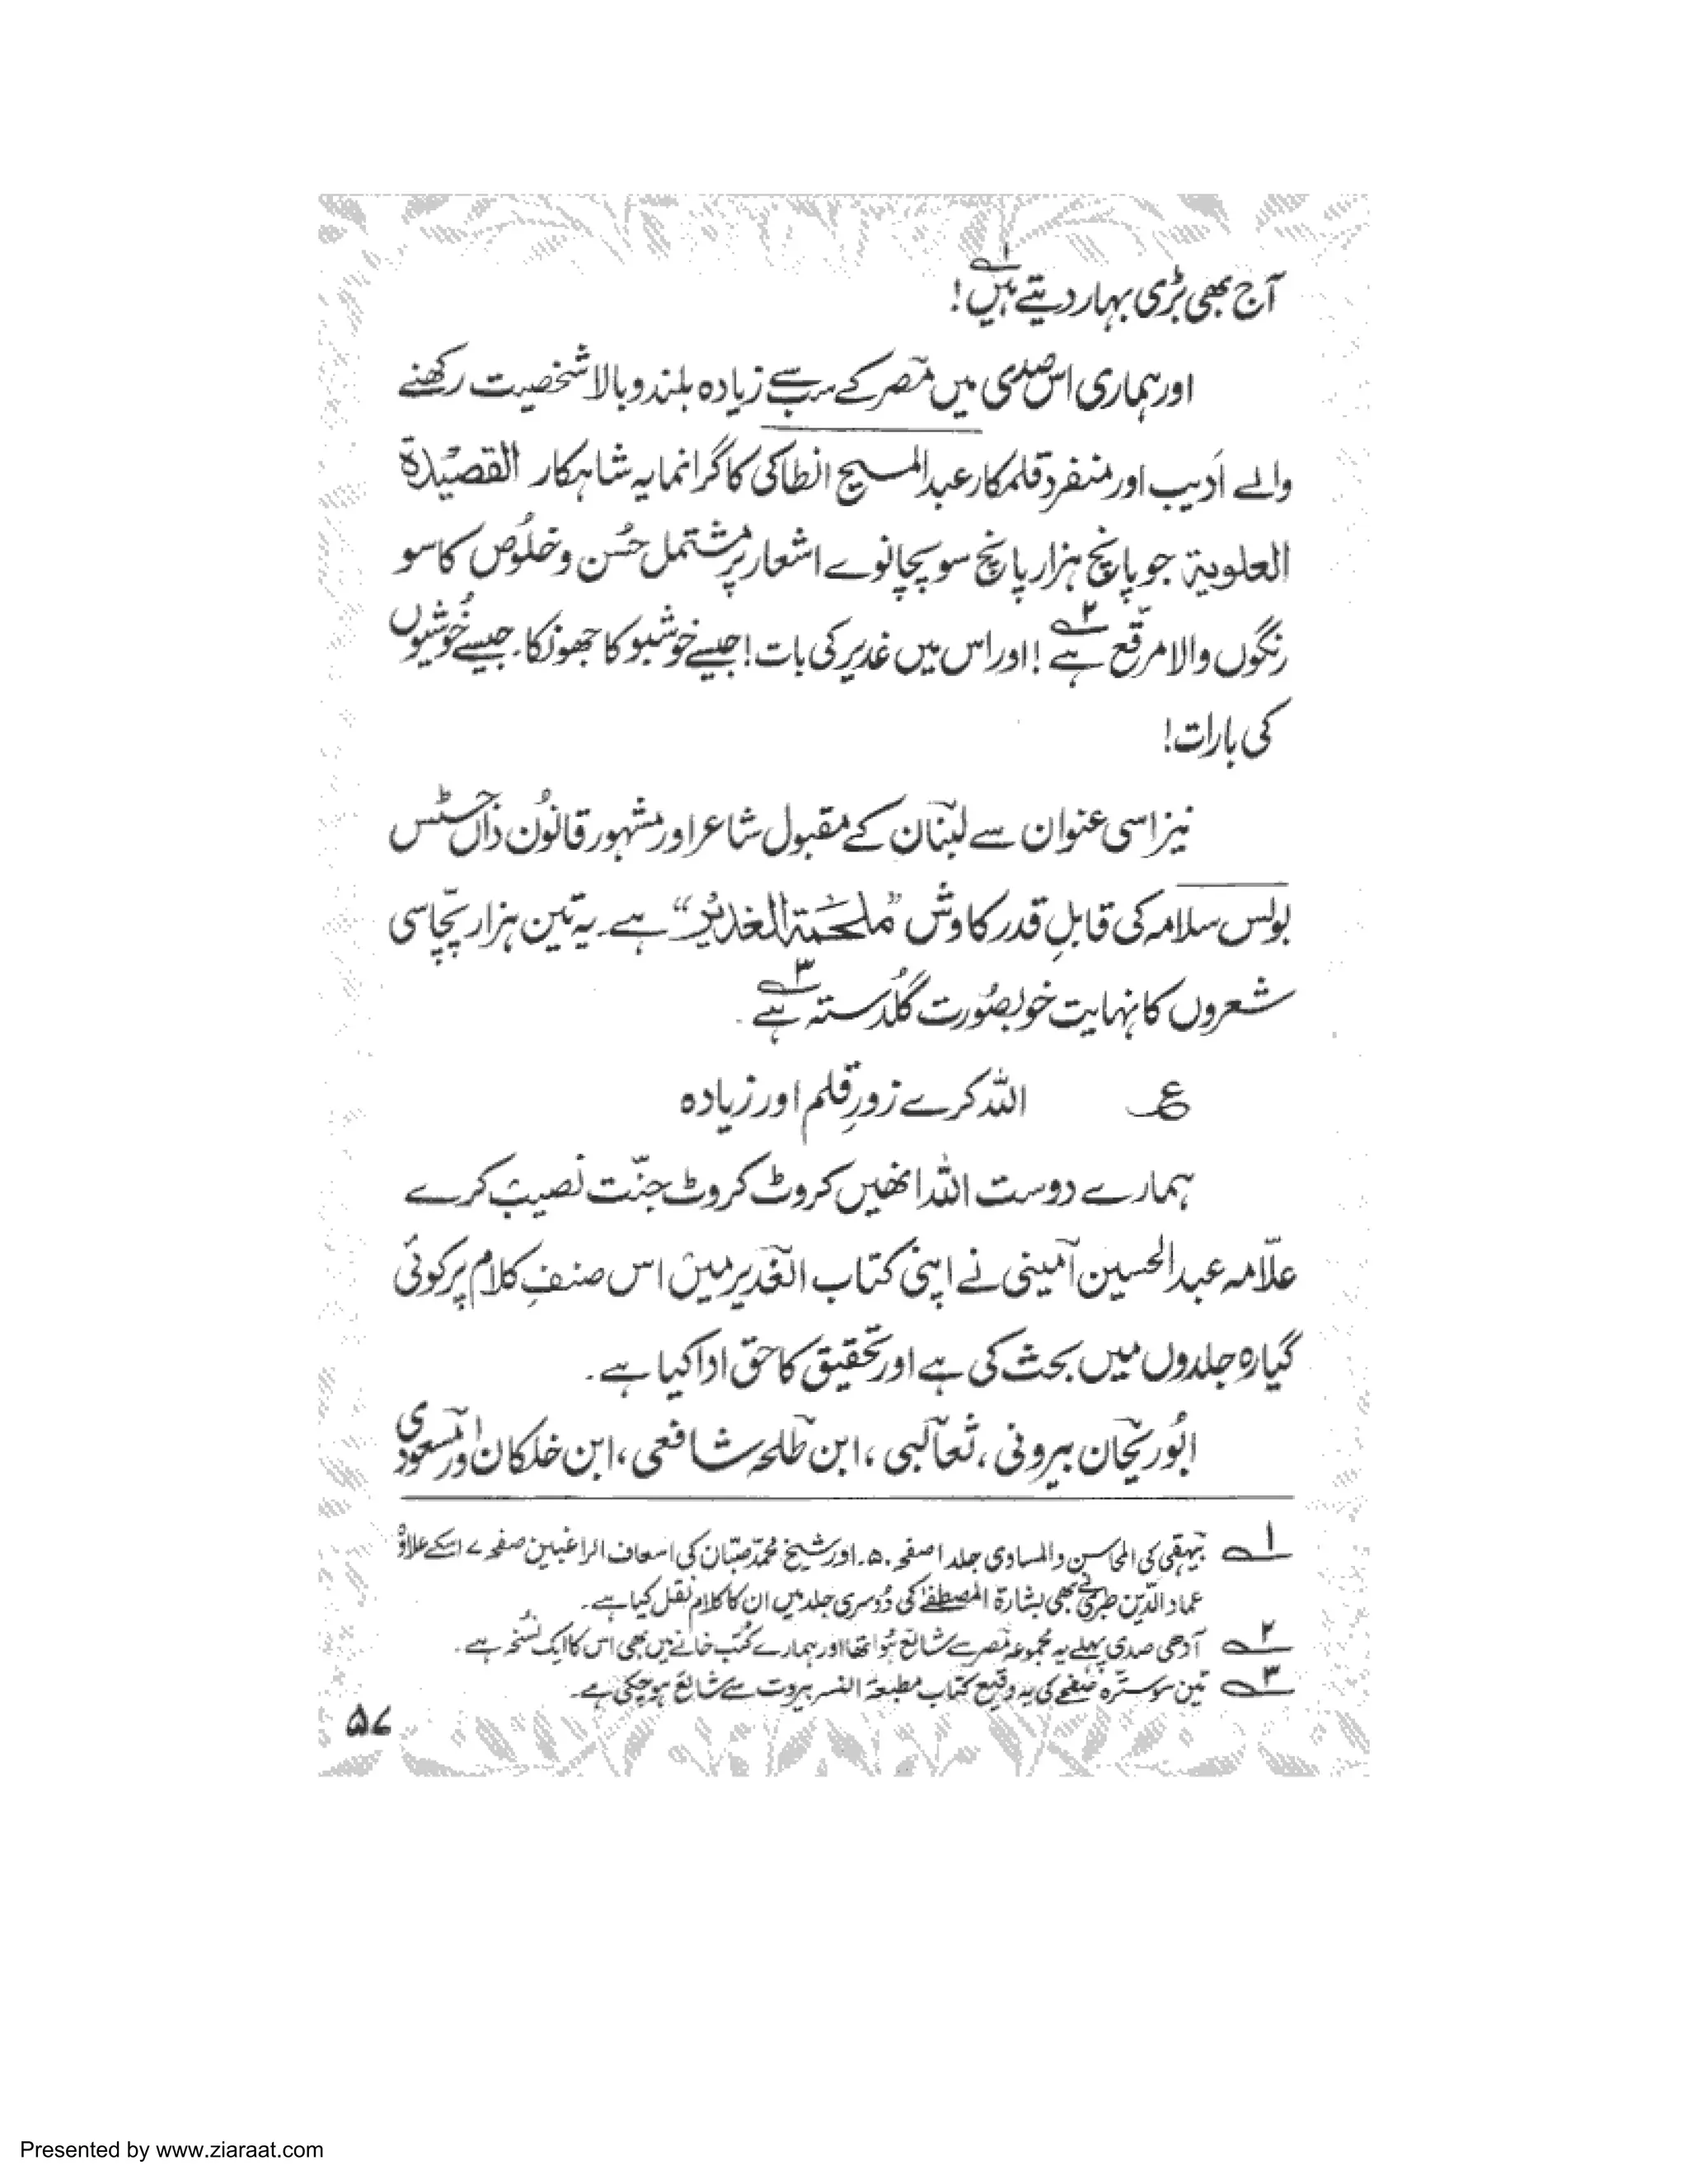 آج بھی بڑی بہار دیتے ہیں۱!
اور ہماری اس صدی میں مصر کے سب سے زیادہ بلند و بالا شخصیت رکھنے
والے اَدیب اور منفرد قلمکار عبدالمسیح انطاکی کا گرانمایہ شاہکار القصیدۃ
العلویۃ جو پانچ ہزار پانچ سو پچانوے اشعار پر مشتمل حُسن و خلوُص کا سو
رنگوں والا مرقّع ہے۲! اور اس میں غدیر کی بات! جیسے خوشبو کا جھونکا۔ جیسے خُوشیوں
کی بارات!
نیز اسی عنوان سے لبنان کے مقبول شاعر اور مشہور قانوُن داں جسٹس
بولس سلامہ کی قابلِ قدر کاوش ”ملحمۃ الغدیر“ ہے۔ یہ تین ہزار پچّاسی
شعروں کا نہایت خوبصُورت گلُدستہ ہے۳۔
ع اللہ کرے زورِ قلم اور زیادہ
ہمارے دوست اللہ انھیں کروٹ کروٹ جنّت نصیب کرے
علّامہ عبدالحسین امینی نے اپنی کتاب الغدیر میں اس صنفِ کلام پر کوئی
گیارہ جلدوں میں بحث کی ہے اور تحقیق کا حق ادا کیا ہے۔
ابُوریحان بیرونی، ثعالبی، ابن طلحہ شافعی، ابن خلکان اور مسعودی
۱ بیہقی کی المحاسن والمساوی جلد ۱ صفحہ ۵۰۔ اور شیخ محمّد صبّان کی اسعاف الراغبین صفحہ ۷ اسکے علاوہ
عماد الدّین طبری نے بھی بشارۃ المصطفےٰ کی دُوسری جلد میں ان کا کلام نقل کیا ہے۔
۲ آدھی صدی پہلے یہ مجموعہ مصر سے شائع ہُوا تھا اور ہمارے کُتب خانے میں بھی اس کا ایک نُسخہ ہے۔
۳ تین سو سترہ صفحے کی یہ وقیع کتاب مطبعۃ النسر بیروت سے شائع ہو چکی ہے۔
۵۷
Presented by www.ziaraat.com